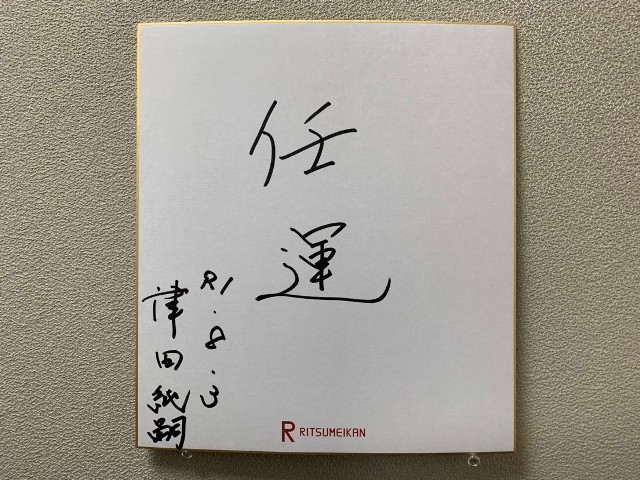 任運
R1.8.3
津田純嗣
R RITSUMEIKAN